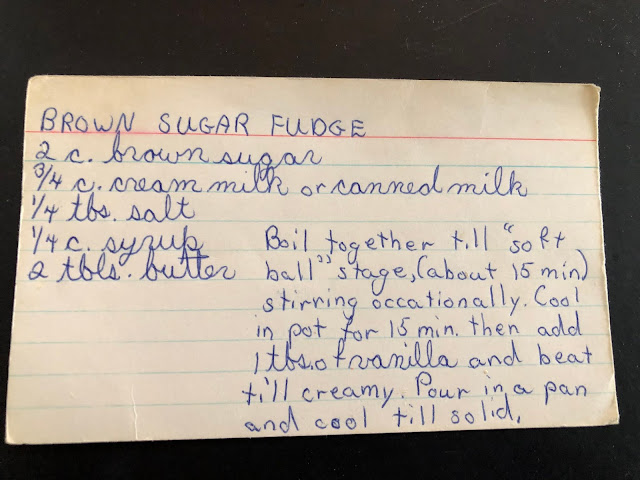 BROWN SUGAR FUDGE
2 c. brown sugar
3/4 c. cream milk or canned milk
1/4 tbs. salt
1/4 c. syrup
2 tbls. butter
Boil together till "soft
ball" stage, (about 15 min)
stirring occationally. Cool
in pot for 15 min. then add
1 tbs. of vanilla and beat
till creamy. Pour in a pan
and cool till solid.